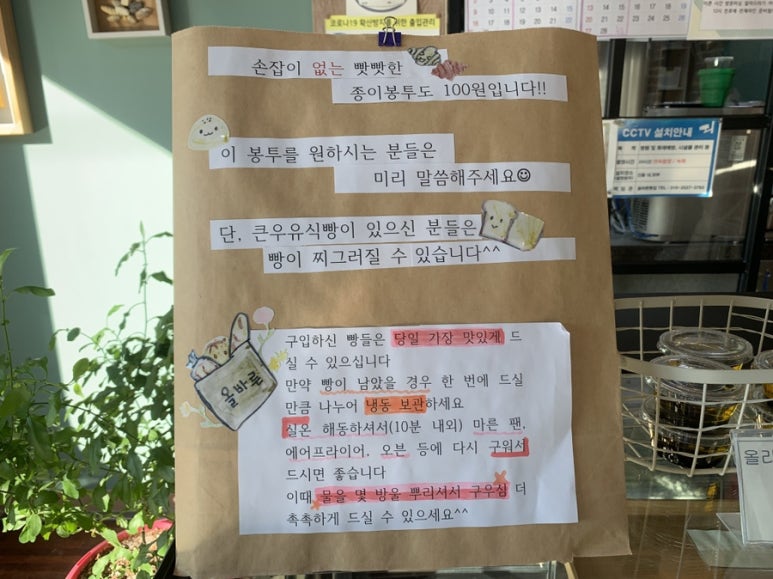 코로나19 확산방지를 위한 출입관리
손잡이 없는 빳빳한
종이봉투도 100원입니다!!
이 봉투를 원하시는 분들은
미리 말씀해주세요
단, 큰우유식빵이 있으신 분들은
빵이 찌그러질 수 있습니다^^
올바른
구입하신 빵들은 당일 가장 맛있게 드
실 수 있으십니다
만약 빵이 남았을 경우 한 번에 드실
만큼 나누어 냉동 보관하세요
실온 해동하셔서(10분 내외) 마른 팬,
에어프라이어, 오븐 등에 다시 구워서
드시면 좋습니다
이때 물을 몇 방울 뿌리셔서 구우심 더
촉촉하게 드실 수 있으세요^^
CCTV 설치안내
올리